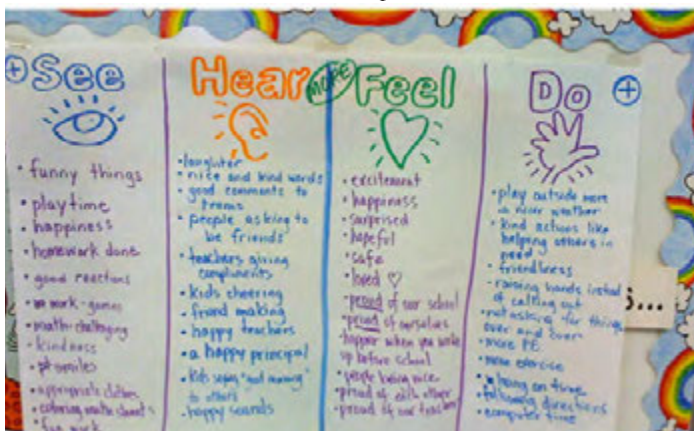 + See
• funny things
• playtime
• happiness
• homework done
• good reactions
work - games
• math - challenging
• kindness
smiles
• appropriate clothes
• coloring math
• fun work
Hear
• laughter
• nice and kind words
• good comments to
• people asking to
be friends
• teachers giving
compliments
• kids cheering
• friend making
• happy teachers
• a happy principal
• kids saying "good morning"
to others
• happy sounds
MORE
Feel
• excitement
• happiness
• surprised
• hopeful
• safe
• loved ♡
• proud of our school
• proud of ourselves
• happier when you wake
up before school
• people being nice
• proud of each other
• proud of our teachers
Do +
• play outside more
in nicer weather
• kind actions like
helping others in
need
• friendliness
• raising hands instead
of calling out
• not asking for things
over and over
• more PE
• more exercise
• being on time
• following directions
• computer time
s...